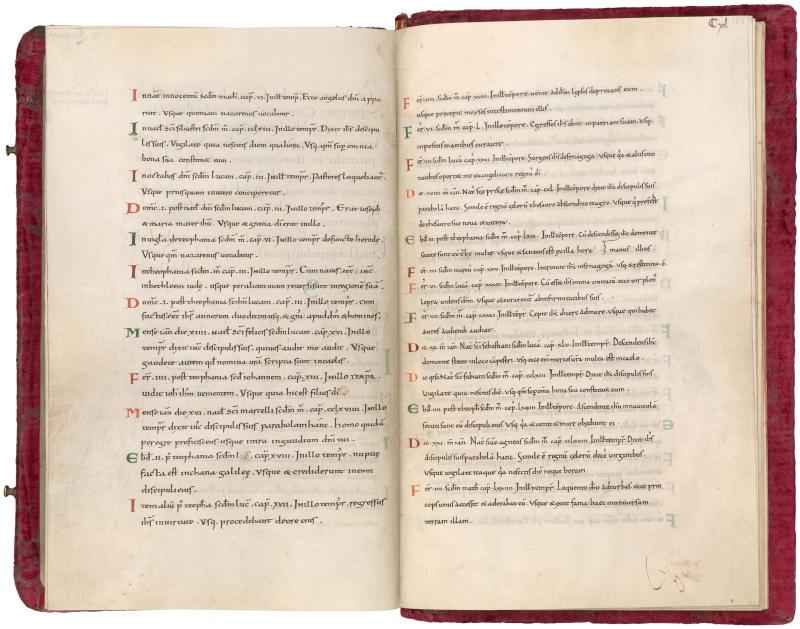 In nat innocentum scdm math. cap. VI. In ill tempr. Ecce angelus dni appa
ruit. Usque quoniam nazareus vocabitur.
In nat sci silvestri scdm m. cap. cclxiii. In illo tempr. Dixit ihs discipu
lis suis. Vigilate quia nescitis diem qua hora. Usq. qm sup omnia
bona sua constituet eum.
In octabas dni scdm lucam. cap. iii. In ill tempr. Pastores loquebant.
Usque priusquam in utero conciperetur.
Domc. i. post nat dni scdm lucam. cap. iii. In illo tempr. Erat ioseph
& maria mater ihu. Usque & gratia di erat in illo.
In vigla de theophania scdm m. cap. vi. In illo tempr. defuncto herode.
Usque qm nazareus vocabitur.
In theophania scdm m. cap. iii. In illo tempr. Cum natus eet ihc
in bethleem iude. Usque per aliam viam reversi sunt in regione sua.
Domc. i. post theophania scdm lucam. cap. iii. In illo tempr. cum
factus eet ihs annorum duodecim. usq. & gra apud dm & homines.
Mense ian die xiiii. nat sci felicis scdm lucam. cap. xvi. In illo
tempr dixit ihc discipulis suis. qui vos audit me audit. Usque
gaudete autem qd nomina vra scripta sunt in caelis.
Fer. iiii. post teophania scd iohannem. cap. xiii. In illo tempr.
vidit ioh ihm venientem. Usque quia hic est filius di
Mense ian die xvi. nat sci marcelli scdm m. cap. cclxviiii. In illo
tempr dixit ihc discipulis suis parabolam hanc. Homo quida
peregre proficiscens usque intra in gaudium dni tui.
Ebd. ii. p teophania scdm cap. xviii. In illo tempr. nuptie
facta est in chana galilee. Usque & crediderunt in eum
discipuli eius.
Item aliu p teopha scdm luc. cap. xvii. In illo tempr. regressus
ihs in virtute. Usq. procedebant de ore eius.
Cxl
Fer. iiii. scdm m cap. xxiii. In ill tepore. venit ad ihm leprosus deprecans eum.
usque precepit moyses in testimonium illis.
Fer. vi. scdm m cap. l. In illo tepore. Egressus ihs abiit in patriam suam. Usq.
impositis manibus curavit.
Fer. vii scdm luca cap. xxvi. In ill tepore. Surgens ihs de synagoga. usque qa & aliis civi
tatibus oportet me evangelizare regnu di.
Die xviii. m ian. Nat sce prisce scdm m. cap. cxl. In ill tepore dixit ihc discipulis suis
parabola hanc. Simile e regnu celoru thesauro abscondito in agro. Usque q profert
de thesauro suo nova & vetera.
Ebd. ii. post theophania scdm m. cap. lxiii. In ill tepore. Cu descendisset ihc de monte
secute sunt eu turbe multe. usque & sanatus est puer in illa hora
manus illius.
Fer. iiii. scdm marcu cap. xxv. In ill tepore. Introivit ihs in synagoga. usq. & restituta e
Fer. vi. scdm luca. cap. xxxiii. In ill tepore. Cu esset ihs in una civitatu ecce vir plen
lepra videns ihm. Usque & curarent ab infirmitatibus suis.
Fer. vii. scdm m. cap. xxxi. In ill tepr. Cepit ihc docere ad mare. usque qui habet
aures audiendi audiat.
Die xx. m ian. Nat sci sebastiani scdm luca. cap. xlv. In ill tempr. Descendens ihc
de monte stetit in loco capestri. usq. ecce eni merces vra multa est in caelo.
Die ipso. Nat sci fabiani scdm m. cap. cclxiii. In ill tempr. Dixit ihc discipulis suis
Vigilate quia nescitis die. usq. qm sup oma bona sua constituet eum.
Ebd. iii. post theoph scdm m. cap. lxviiii. In ill tempr. Ascendente ihu in navicola
secuti sunt eu discipuli eius. Usq. qa & venti & mare obediunt ei.
Die xxi. m ian. Nat sce agnetis scdm m. cap. cclxviii. In ill tempr. Dixit ihs
discipulis suis parabola hanc. Simile e regnu celoru dece virginibus.
Usque vigilate itaque qa nescitis die neque horam.
Fer. iiii. scdm math. cap. lxxiiii. In ill tempr. Loquente ihu ad turbas. ecce prin
ceps unus accessit & adorabat eu. Usque & exiit fama haec in universam
terram illam.